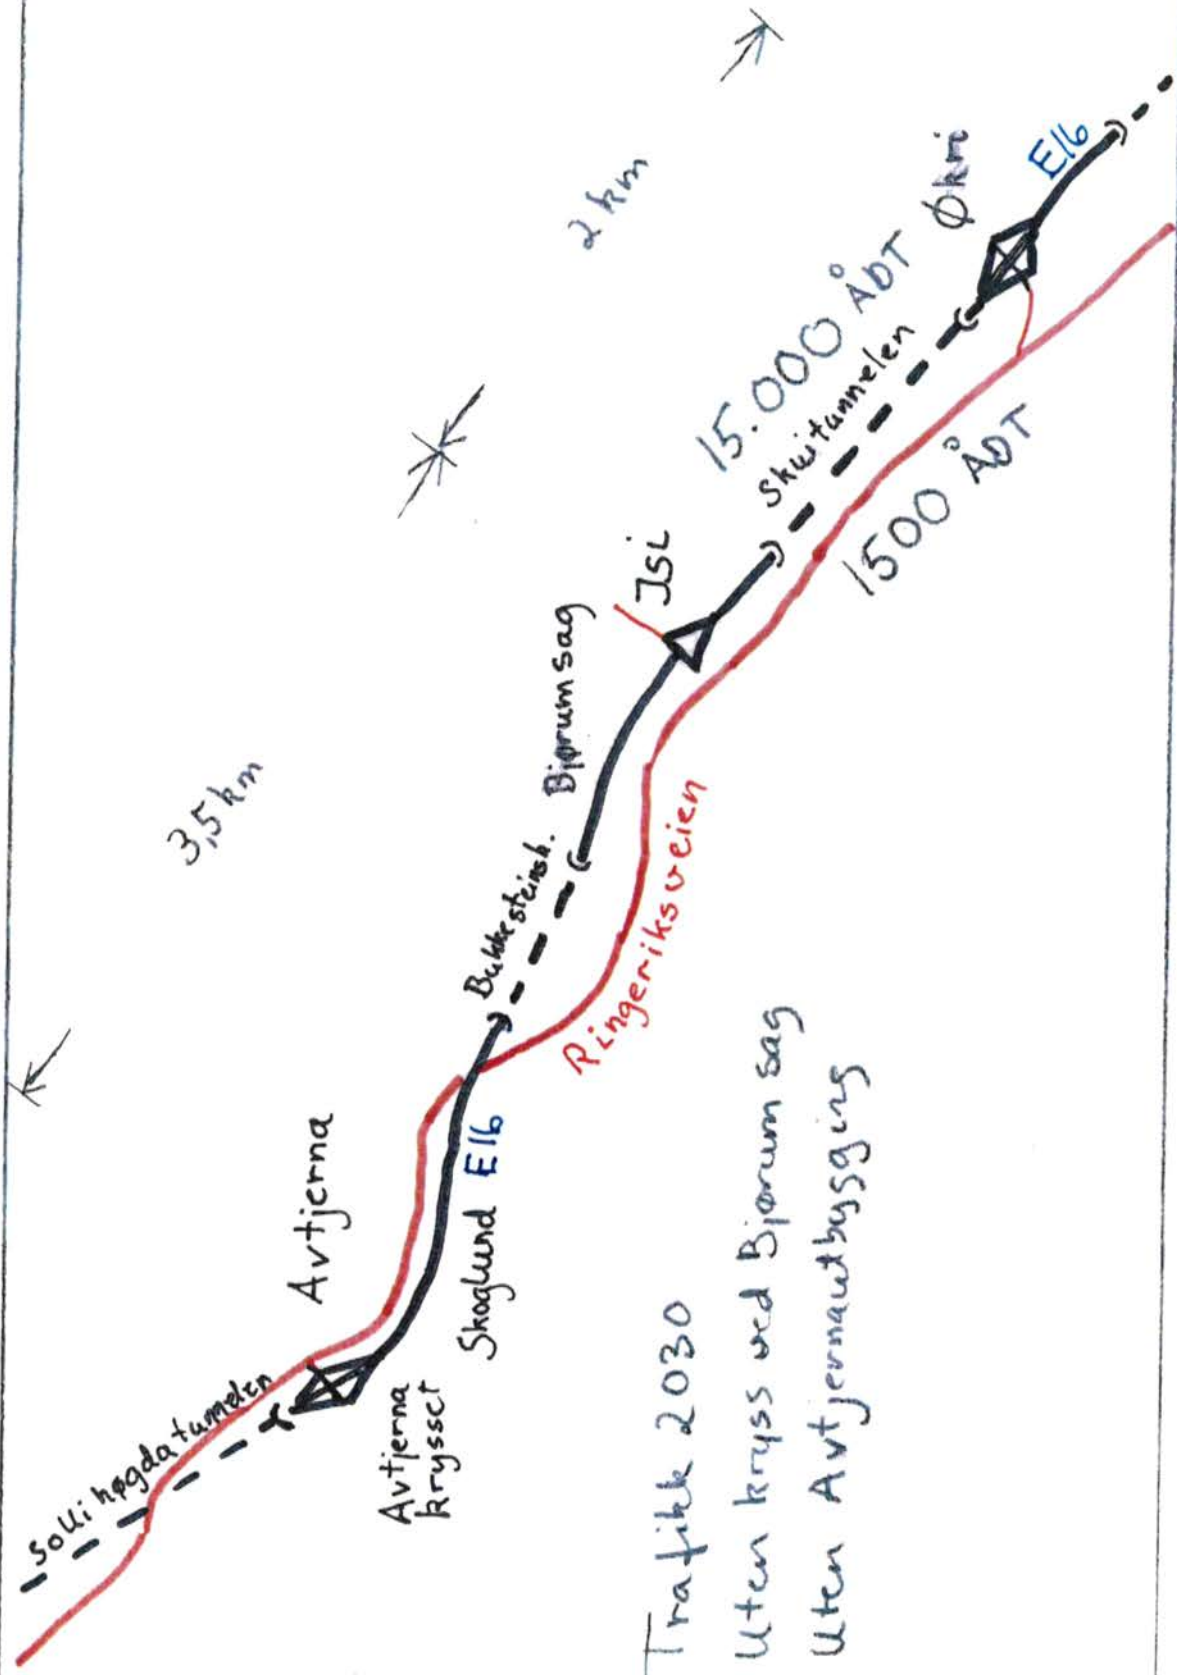 Sollihøgdatunnelen
Avtjerna
Avtjerna
krysset
Skoglund
E16
Bukkesteinsh.
Bjørumsag
Isi
Ringeriksveien
3,5 km
2 km
15.000 ÅDT
Skuitunnelen
1500 ÅDT
Økri
E16
Trafikk 2030
Uten kryss ved Bjørum sag
Uten Avtjernautbygging